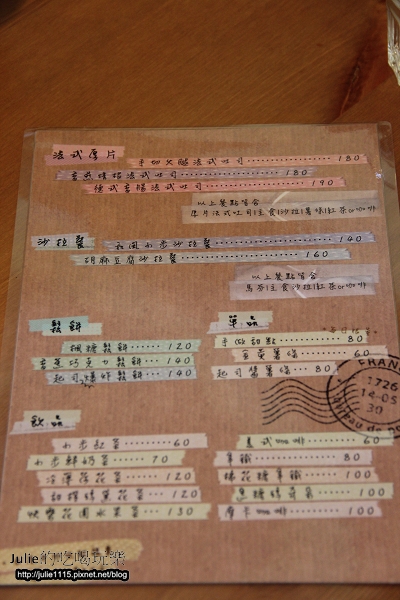 法式厚片
手切火腿法式吐司 180
法式吐司 180
德式香腸法式吐司 190
以上餐點皆含
厚片法式吐司|主食|沙拉|薯條|紅茶or咖啡
沙拉餐
和風小步沙拉餐 140
胡麻豆腐沙拉餐 160
以上餐點皆含
馬芬|主食|沙拉|紅茶or咖啡
鬆餅
楓糖鬆餅 120
香蕉巧克力鬆餅 140
起司 鬆餅 140
單品
手做甜點 80
薯條 60
起司醬薯條 80
FRAN
1726
14-05
30
飲品
小步紅茶 60
小步鮮奶茶 70
薄荷茶 120
花茶 120
花園水果茶 130
美式咖啡 60
拿鐵 80
棉花糖拿鐵 100
黑糖 100
摩卡咖啡 100
Julie的吃喝玩樂
http://julie1115.pixnet.net/blog